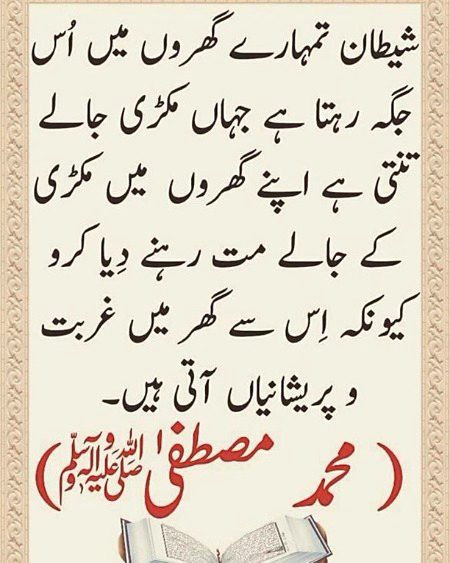 شیطان تمہارے گھروں میں اُس
جگہ رہتا ہے جہاں مکڑی جالے
تنتی ہے اپنے گھروں میں مکڑی
کے جالے مت رہنے دِیا کرو
کیونکہ اِس سے گھر میں غربت
و پریشانیاں آتی ہیں۔
(محمد مصطفیٰ صلی اللہ علیہ وآلہ وسلم)